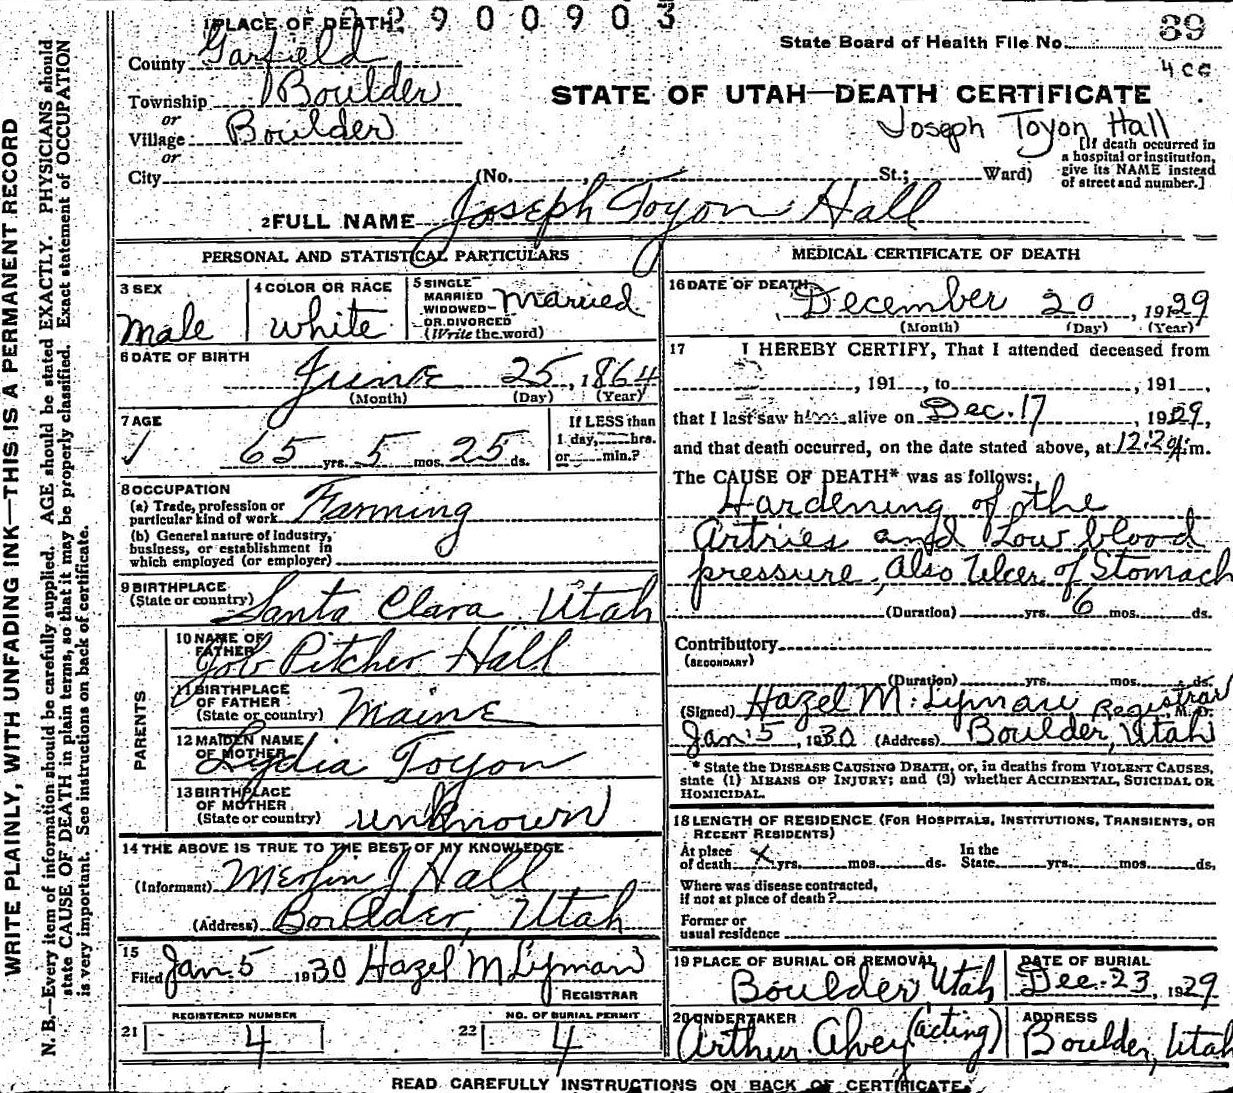 2900903
1 PLACE OF DEATH
39
State Board of Health File No.
4 cc
County Garfield
Township Boulder
or
Village Boulder
or
City (No. , St.; Ward)
STATE OF UTAH—DEATH CERTIFICATE
Joseph Toyon Hall
[If death occurred in
a hospital or institution,
give its NAME instead
of street and number.]
2 FULL NAME Joseph Toyon Hall
PERSONAL AND STATISTICAL PARTICULARS
3 SEX
Male
4 COLOR OR RACE
White
5 SINGLE
MARRIED
WIDOWED
OR DIVORCED
(Write the word)
Married
6 DATE OF BIRTH
June 25, 1864
(Month) (Day) (Year)
7 AGE
65 yrs. 5 mos. 25 ds.
If LESS than
1 day, hrs.
or min.?
8 OCCUPATION
(a) Trade, profession or
particular kind of work Farming
(b) General nature of Industry,
business, or establishment in
which employed (or employer)
9 BIRTHPLACE
(State or country) Santa Clara Utah
PARENTS
10 NAME OF
FATHER
Job Pitcher Hall
11 BIRTHPLACE
OF FATHER
(State or country) Maine
12 MAIDEN NAME
OF MOTHER
Lydia Toyon
13 BIRTHPLACE
OF MOTHER
(State or country) unknown
14 THE ABOVE IS TRUE TO THE BEST OF MY KNOWLEDGE
(Informant) Merlin J Hall
(Address) Boulder, Utah
15
Filed Jan. 5 1930 Hazel M Lyman
REGISTRAR
21 REGISTERED NUMBER
4
22 NO. OF BURIAL PERMIT
4
MEDICAL CERTIFICATE OF DEATH
16 DATE OF DEATH
December 20, 1929
(Month) (Day) (Year)
17 I HEREBY CERTIFY, That I attended deceased from
, 191 , to , 191 ,
that I last saw him alive on Dec. 17, 1929,
and that death occurred, on the date stated above, at m.
The CAUSE OF DEATH* was as follows:
Hardening of the
Artries and Low blood
pressure, Also Ulcer of Stomach
(Duration) yrs. 6 mos. ds.
Contributory
(SECONDARY)
(Duration) yrs. mos. ds.
(Signed) Hazel M. Lyman Registrar M. D.
Jan. 5, 1930 (Address) Boulder, Utah
* State the DISEASE CAUSING DEATH, or, in deaths from VIOLENT CAUSES,
state (1) MEANS OF INJURY; and (2) whether ACCIDENTAL, SUICIDAL OR
HOMICIDAL.
18 LENGTH OF RESIDENCE (FOR HOSPITALS, INSTITUTIONS, TRANSIENTS, OR
RECENT RESIDENTS)
At place
of death X yrs. mos. ds. In the
State yrs. mos. ds.
Where was disease contracted,
if not at place of death?
Former or
usual residence
19 PLACE OF BURIAL OR REMOVAL
Boulder Utah
DATE OF BURIAL
Dec. 23, 1929
20 UNDERTAKER
Arthur Alvey (acting)
ADDRESS
Boulder, Utah
READ CAREFULLY INSTRUCTIONS ON BACK OF CERTIFICATE.
WRITE PLAINLY, WITH UNFADING INK—THIS IS A PERMANENT RECORD
N. B.—Every item of information should be carefully supplied. AGE should be stated EXACTLY. PHYSICIANS should
state CAUSE OF DEATH in plain terms, so that it may be properly classified. Exact statement of OCCUPATION
is very important. See instructions on back of certificate.